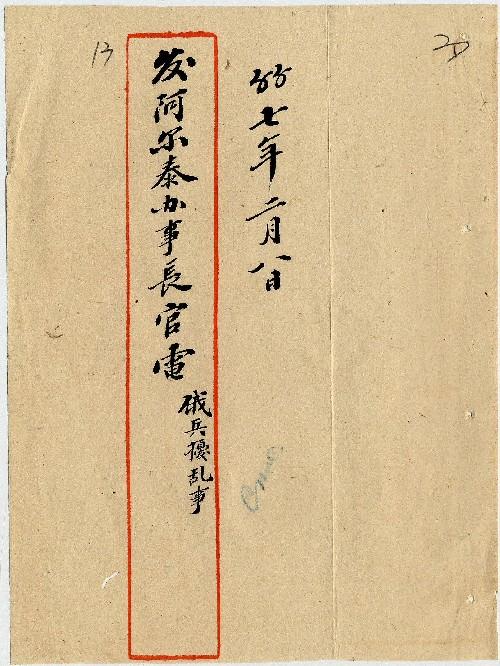 七年二月八日
发阿尔泰办事長官電
俄兵擾乱事
13